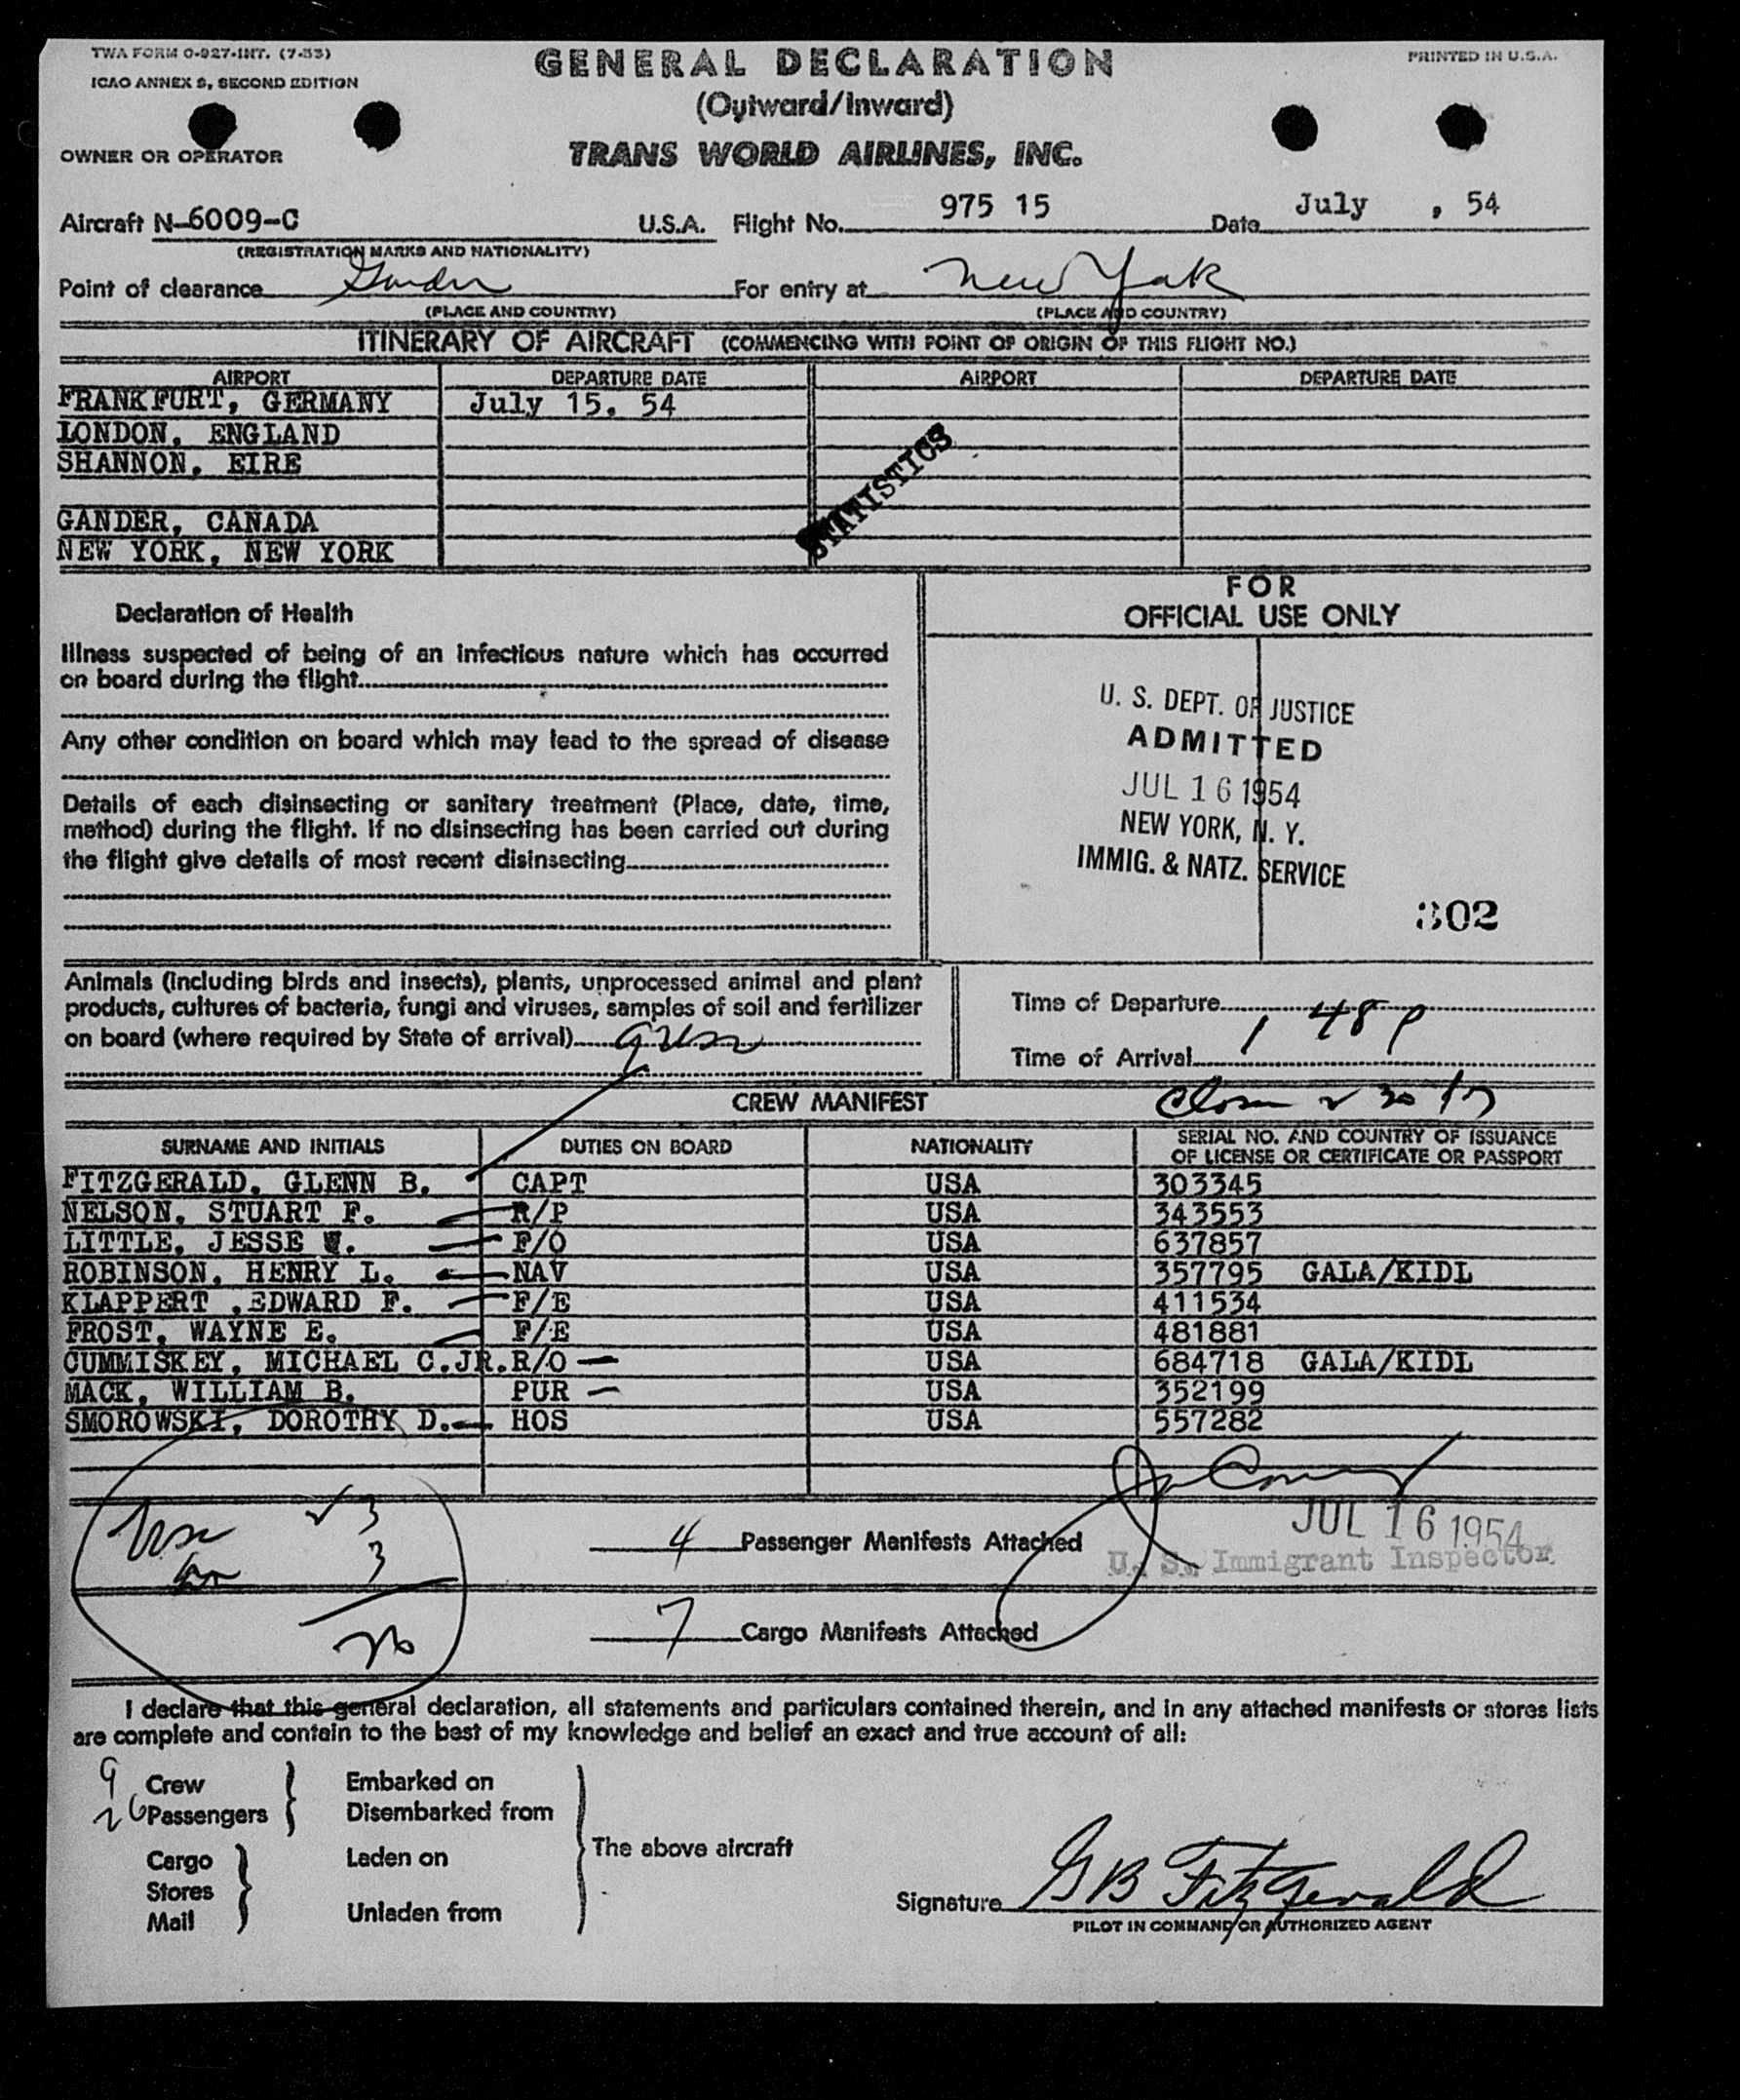 TWA FORM O-927-INT. (7-53)
GENERAL DECLARATION
PRINTED IN U.S.A.
ICAO ANNEX 9, SECOND EDITION
(Outward/Inward)
OWNER OR OPERATOR
TRANS WORLD AIRLINES, INC.
Aircraft N-6009-C U.S.A. Flight No. 975 15 Date July , 54
(REGISTRATION MARKS AND NATIONALITY)
Point of clearance Gander For entry at New York
(PLACE AND COUNTRY) (PLACE AND COUNTRY)
ITINERARY OF AIRCRAFT (COMMENCING WITH POINT OF ORIGIN OF THIS FLIGHT NO.)
AIRPORT DEPARTURE DATE AIRPORT DEPARTURE DATE
FRANKFURT, GERMANY July 15, 54
LONDON, ENGLAND
SHANNON, EIRE
STATISTICS
GANDER, CANADA
NEW YORK, NEW YORK
FOR
OFFICIAL USE ONLY
Declaration of Health
Illness suspected of being of an infectious nature which has occurred
on board during the flight
Any other condition on board which may lead to the spread of disease
Details of each disinsecting or sanitary treatment (Place, date, time,
method) during the flight. If no disinsecting has been carried out during
the flight give details of most recent disinsecting
U. S. DEPT. OF JUSTICE
ADMITTED
JUL 16 1954
NEW YORK, N. Y.
IMMIG. & NATZ. SERVICE
302
Animals (including birds and insects), plants, unprocessed animal and plant
products, cultures of bacteria, fungi and viruses, samples of soil and fertilizer
on board (where required by State of arrival)
Time of Departure
Time of Arrival 1 48 p
CREW MANIFEST
SURNAME AND INITIALS DUTIES ON BOARD NATIONALITY SERIAL NO. AND COUNTRY OF ISSUANCE
OF LICENSE OR CERTIFICATE OR PASSPORT
FITZGERALD, GLENN B. CAPT USA 303345
NELSON, STUART F. R/P USA 343553
LITTLE, JESSE W. F/O USA 637857
ROBINSON, HENRY L. NAV USA 357795 GALA/KIDL
KLAPPERT ,EDWARD F. F/E USA 411534
FROST, WAYNE E. F/E USA 481881
CUMMISKEY, MICHAEL C.JR. R/O USA 684718 GALA/KIDL
MACK, WILLIAM B. PUR USA 352199
SMOROWSKI, DOROTHY D. HOS USA 557282
23
3
26
4 Passenger Manifests Attached
JUL 16 1954
U. S. Immigrant Inspector
7 Cargo Manifests Attached
I declare that this general declaration, all statements and particulars contained therein, and in any attached manifests or stores lists
are complete and contain to the best of my knowledge and belief an exact and true account of all:
9 Crew Embarked on
26 Passengers Disembarked from
The above aircraft
Cargo Laden on
Stores
Mail Unladen from
Signature G B Fitzgerald
PILOT IN COMMAND OR AUTHORIZED AGENT